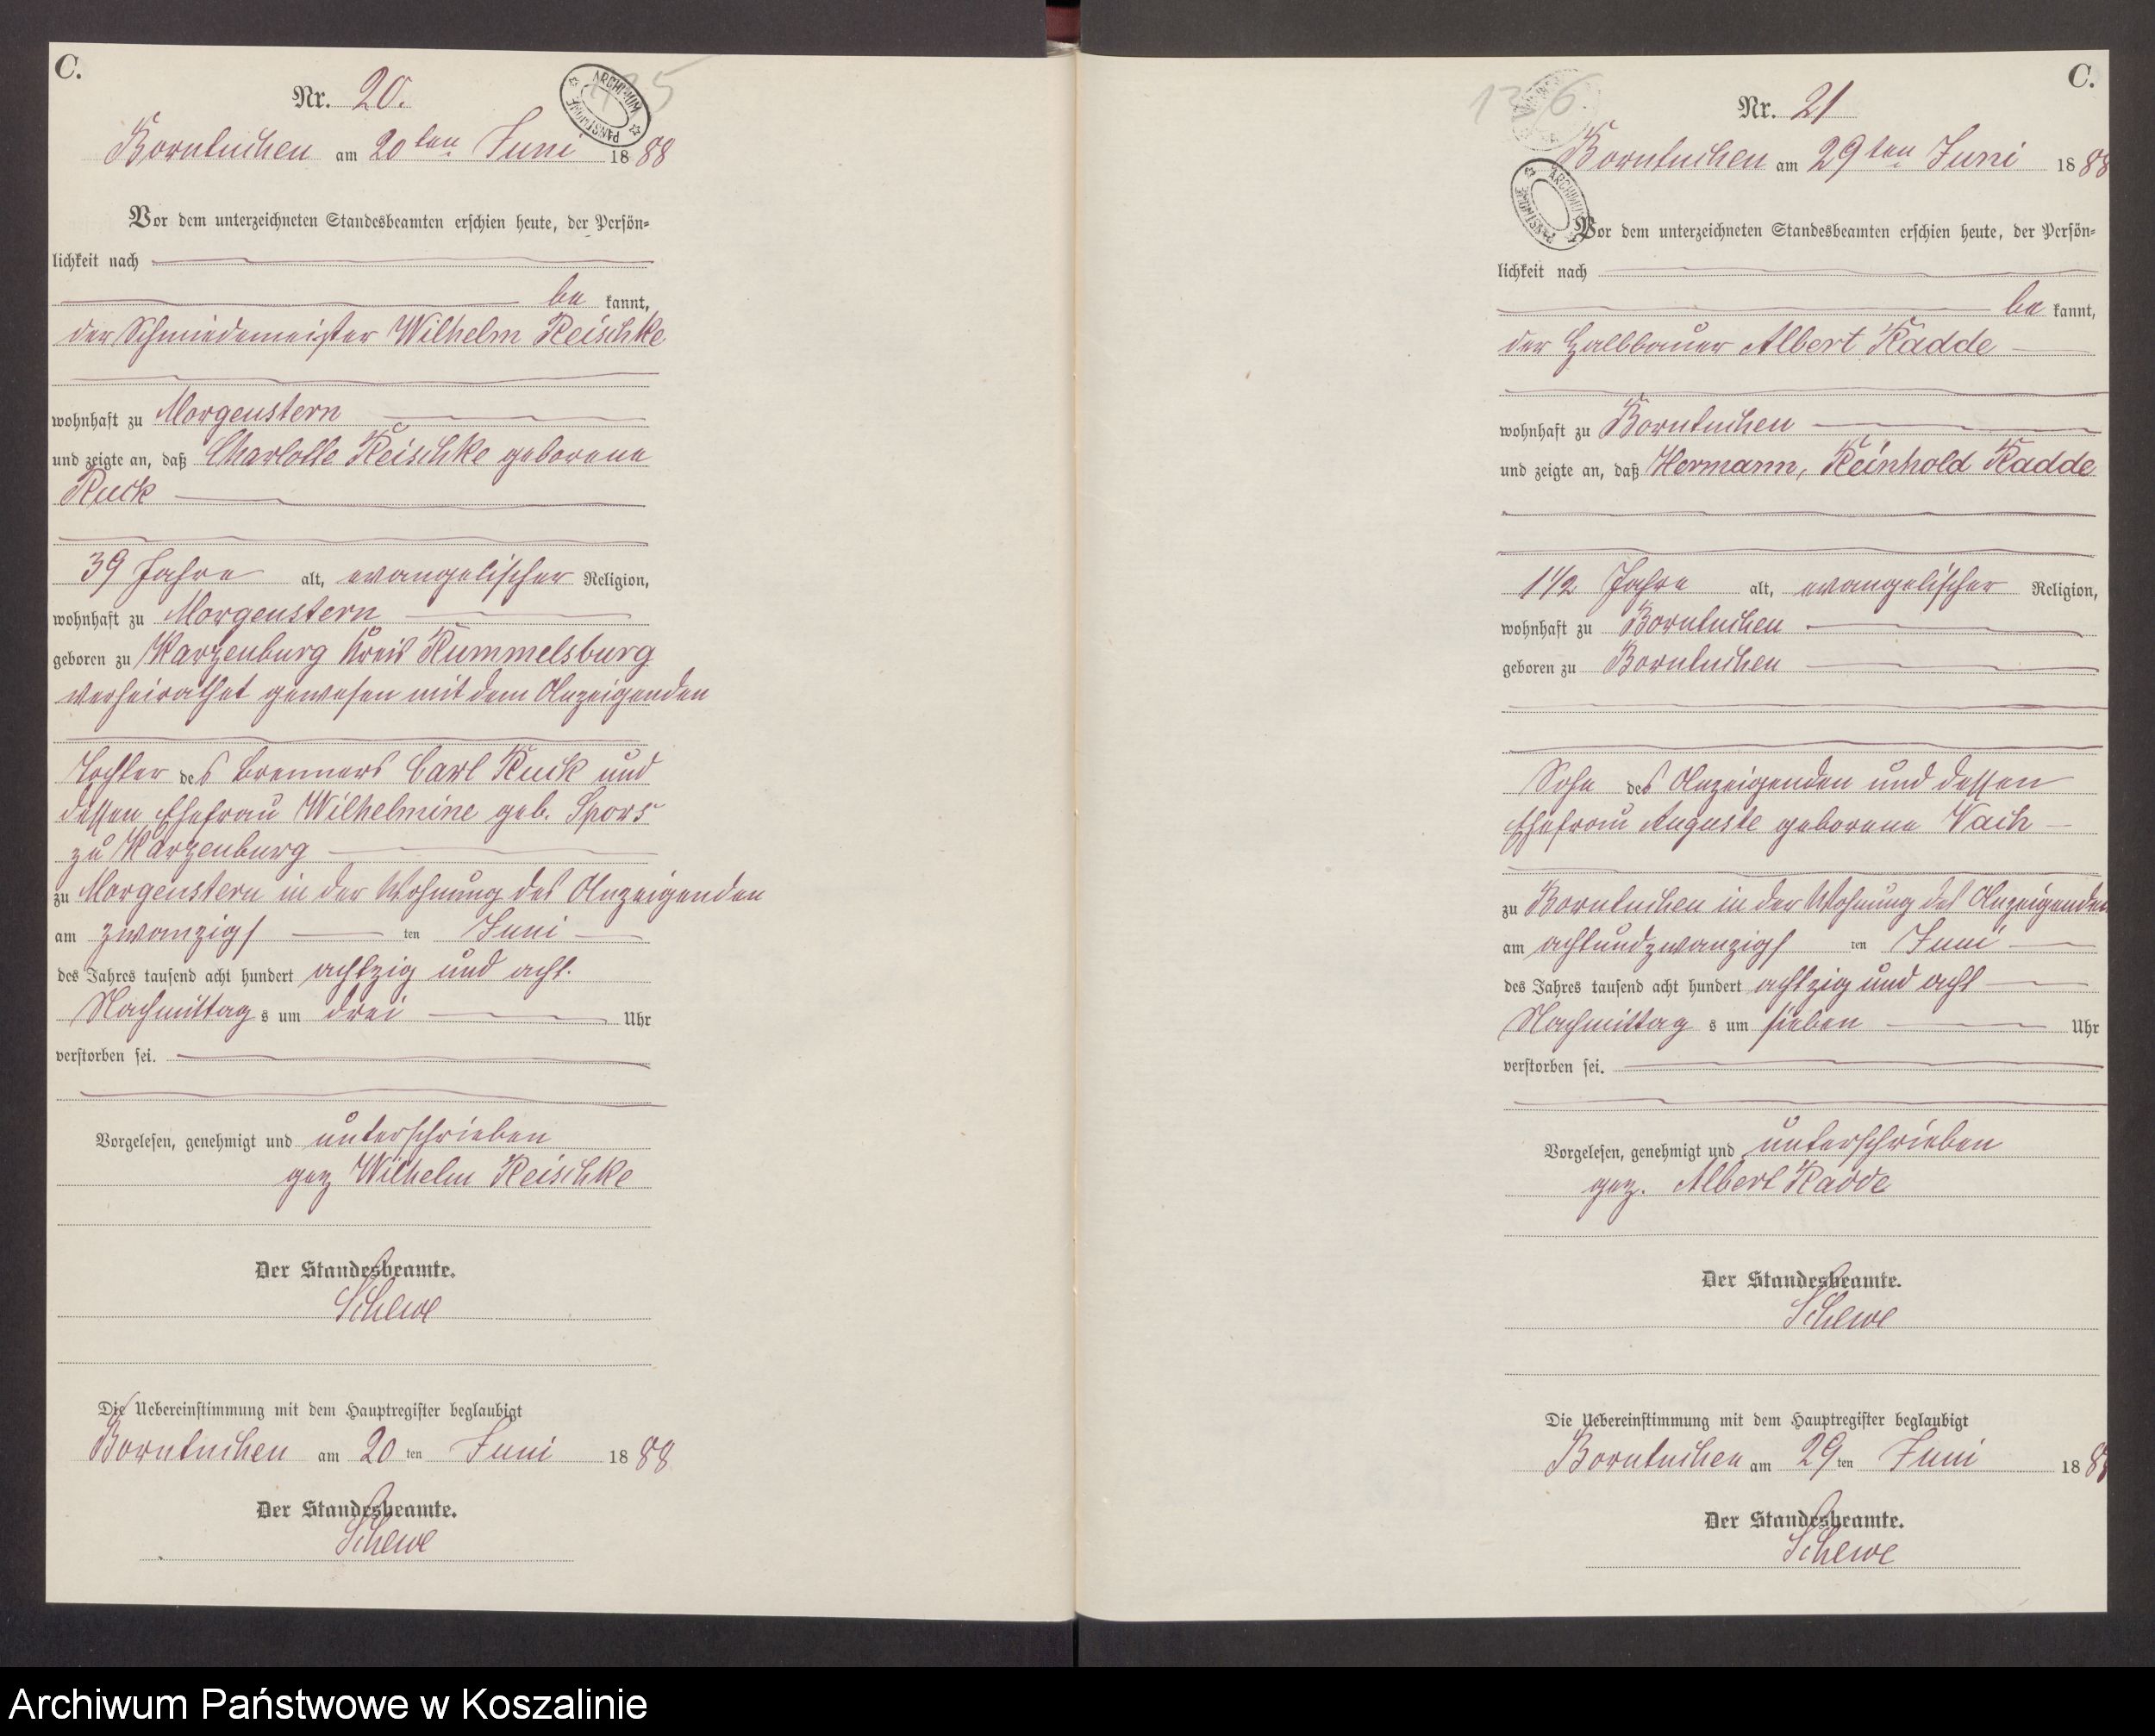 C.
Nr. 20.
ARCHIWUM PAŃSTWOWE
Borntuchen am 20ten Juni 1888
Vor dem unterzeichneten Standesbeamten erschien heute, der Persön-
lichkeit nach
be kannt,
der Schmiedemeister Wilhelm Reischke
wohnhaft zu Morgenstern
und zeigte an, daß Charlotte Reischke geborene
Ruck
39 Jahre alt, evangelischer Religion,
wohnhaft zu Morgenstern
geboren zu Warzenburg Kreis Rummelsburg
verheirathet gewesen mit dem Anzeigenden
Tochter des Brenners Carl Ruck und
dessen Ehefrau Wilhelmine geb. Spors
zu Warzenburg
zu Morgenstern in der Wohnung des Anzeigenden
am zwanzigs ten Juni
des Jahres tausend acht hundert achtzig und acht.
Nachmittag s um drei Uhr
verstorben sei.
Vorgelesen, genehmigt und unterschrieben
gez Wilhelm Reischke
Der Standesbeamte.
Schewe
Die Uebereinstimmung mit dem Hauptregister beglaubigt
Borntuchen am 20 ten Juni 1888
Der Standesbeamte.
Schewe
C.
Nr. 21
Borntuchen am 29ten Juni 1888
ARCHIWUM PAŃSTWOWE
Vor dem unterzeichneten Standesbeamten erschien heute, der Persön-
lichkeit nach
be kannt,
der Halbbauer Albert Radde
wohnhaft zu Borntuchen
und zeigte an, daß Hermann, Reinhold Radde
1 1/2 Jahre alt, evangelischer Religion,
wohnhaft zu Borntuchen
geboren zu Borntuchen
Sohn des Anzeigenden und dessen
Ehefrau Auguste geborene Vach
zu Borntuchen in der Wohnung des Anzeigenden
am achtundzwanzigs ten Juni
des Jahres tausend acht hundert achtzig und acht
Nachmittag s um sieben Uhr
verstorben sei.
Vorgelesen, genehmigt und unterschrieben
gez. Albert Radde
Der Standesbeamte.
Schewe
Die Uebereinstimmung mit dem Hauptregister beglaubigt
Borntuchen am 29 ten Juni 1888
Der Standesbeamte.
Schewe
Archiwum Państwowe w Koszalinie